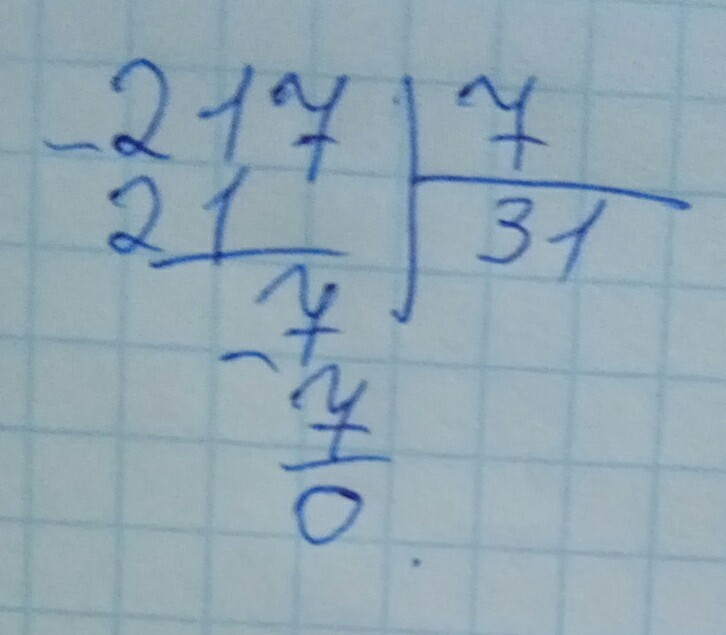 -217 7
21 31
-7
7
0